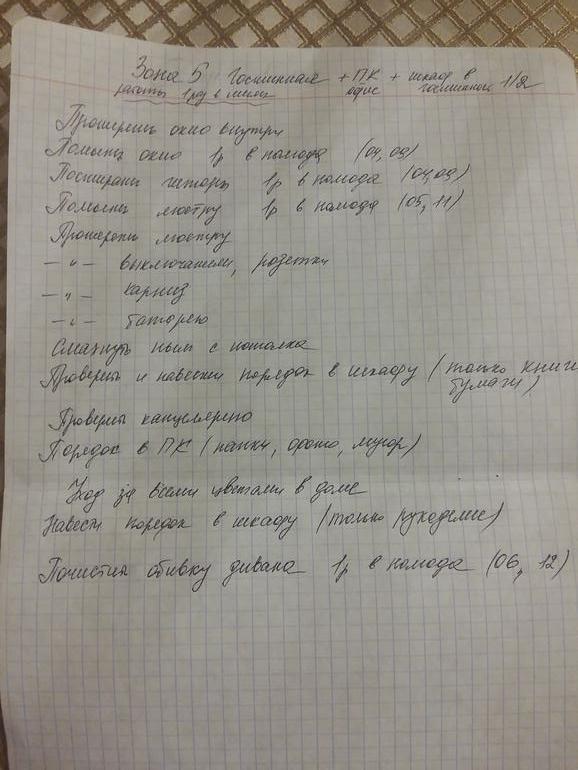 Зона 5 Гостинная + ПК + шкаф в 1/2
работы 1 раз в месяц офис гостинной
Протереть окно внутри
Помыть окно 1р в полгода (04, 09)
Постирать шторы 1р в полгода (04, 09)
Помыть люстру 1р в полгода (05, 11)
Протереть люстру
— " — выключатели, розетки
— " — карниз
— " — батарею
Смахнуть пыль с потолка
Проверить и навести порядок в шкафу (только книги
бумаги)
Проверить канцелярию
Порядок в ПК (папки, фото, мусор)
Уход за всеми цветами в доме
Навести порядок в шкафу (только рукоделие)
Почистить обивку дивана 1р в полгода (06, 12)